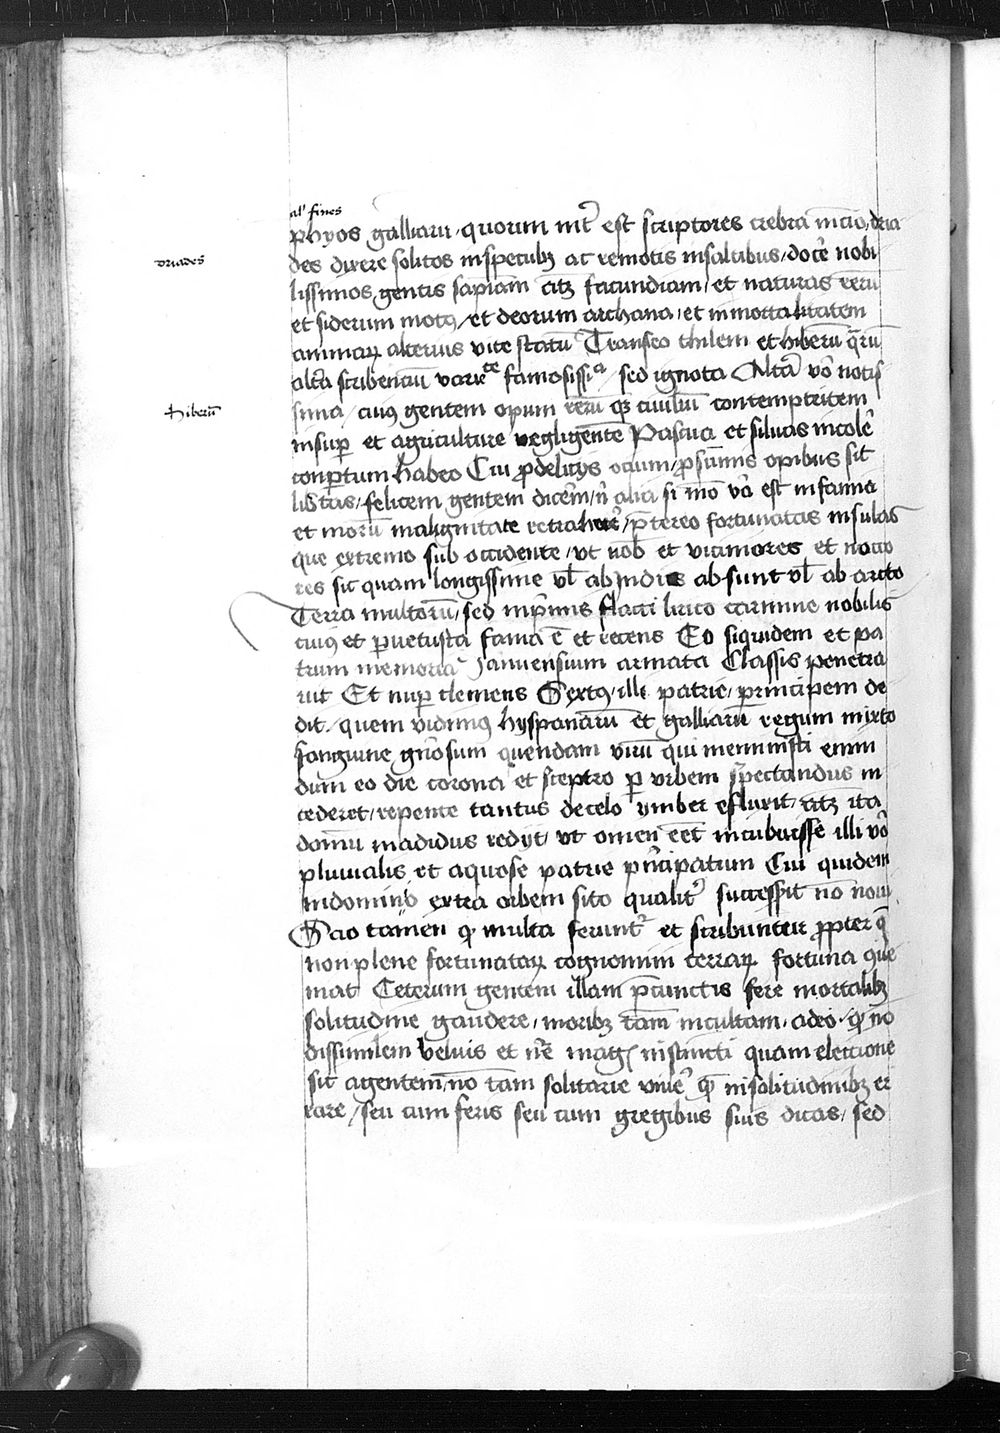 al' fines
phyos galliarū / quorum int͛ est scriptores crebra mēcio / dria
driades
des dixere solitos in specubꝫ ac remotis in saltibus / docē nobi
lissimos gentis sapiam citꝫ facundiam / et naturas rerū
et siderum motꝰ / et deorum archana / et inmortalitatem
animaꝝ alterius vite statū Transeo thilem et hiberū qrū
alt͛a scribenciū varietᵗᵉ famosissiᵃ / sed ignota Alt͛a vō notis
hiberū
sima / cuiꝰ gentem opum rerū ꝗꝫ ciuiliū contemptricem
insuꝑ et agriculture negligentē Pascua et siluas incole᷑
conꝑtum habeo Cui ꝓ delicijs ocium / ꝓ sūmis opibus sit
lib͛tas / felicem gentem dicēm / n̄ alia si mō va est infamia
et morū malignitate retrahere᷑ / p̄tereo fortunatas insulas
que extremo sub occidente / vt nob̄ et viciniores et nocio
res sic quam longissime vl̄ ab indis absunt vl̄ ab arcto
Terra multorū / sed inp̄mis flacci lirico carmine nobilis
cuiꝰ et ꝑuetusta fama ē et recens Eo siquidem et pa
trum memoria Januensium armata Classis penetra
uit Et nuꝑ clemens Sextꝰ / illi patrie / principem de
dit / quem vidimꝰ hyspanarū et galliarū regum mixto
sanguine gn̄osum quendam virū qui meministi enim
dum eo die corona et sceptro ꝑ vrbem spectandus in
cederet / repente tantus de celo ymber efluxit / citꝫ ita
domū madidus redijt / vt omen eēt incubuisse illi vō
pluuialis et aquose patrie pn̄cipatum Cui quidem
in dominio extra orbem sito qualit͛ successit nō noui
Scio tamen ꝙ multa ferunt͛ et scribuntur ꝓpter q̄
non plene fortunataꝝ cognomini terraꝝ fortuna que
niat Ceterum gentem illam p̄cunctis fere mortalibꝫ
solitudine gaudere / moribꝫ tam̄ incultam / adeo / ꝙ nō
dissimilem beluis et n͛e maḡ instincti quam eleccione
sic agentem / nō tam̄ solitarie viue᷑ ꝗ̄ in solitudinibꝫ er
rare / seu cum feris seu cum gregibus suis dicas / sed